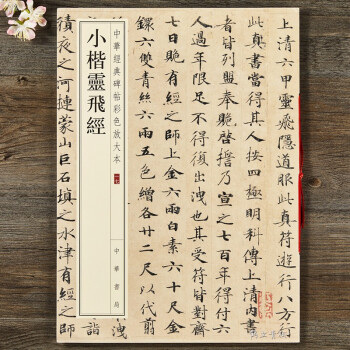 中華經典碑帖彩色放大本
小楷靈飛經
中華書局
上清六甲靈飛隱道服此真符遊行八方行
此真書當得其人按四極明科傳上清內書
者皆列盟奉贶啓誓乃宣之七百年得付六
人過年限足不得復出洩也其受符皆對齋
七日贶有經之師上金六兩白素六十尺金
鐶六雙青絲六兩五色繒各廿二尺以代翦
積夜之河掝蒙山巨石填之水津有經之師
詣
洩